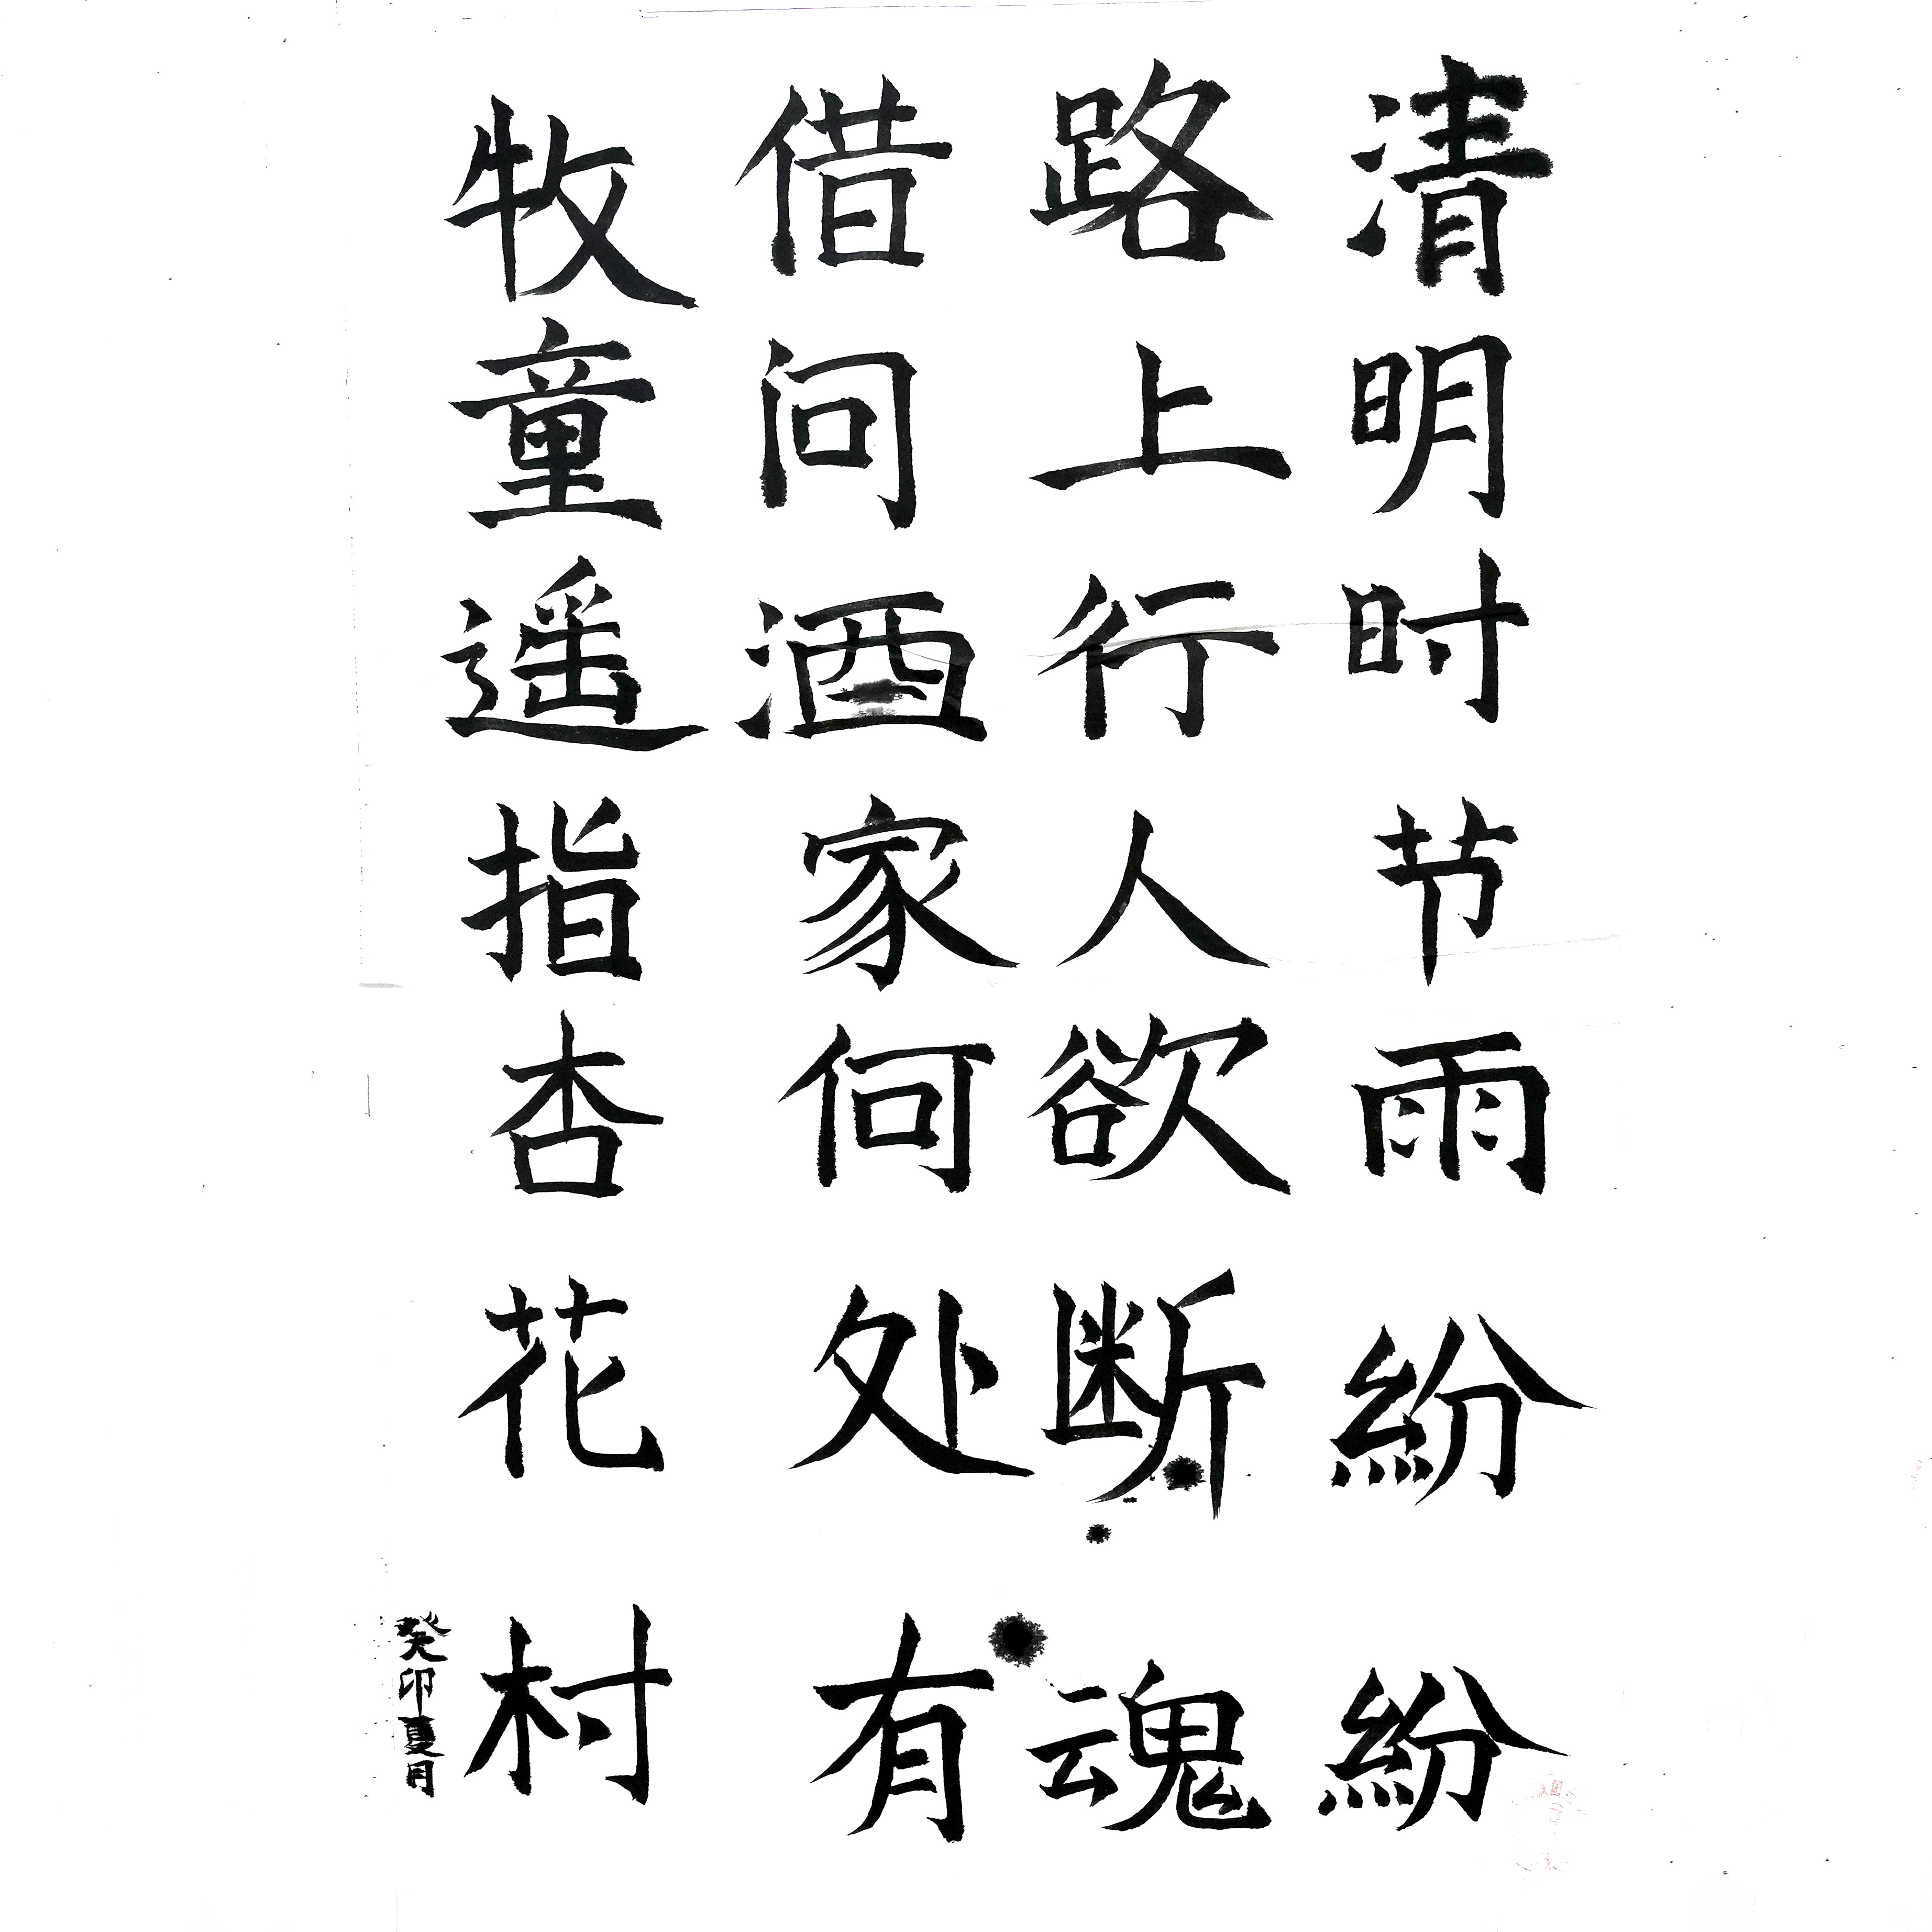 清明时节雨紛紛
路上行人欲断魂
借问酒家何处有
牧童遥指杏花村
癸卯夏月